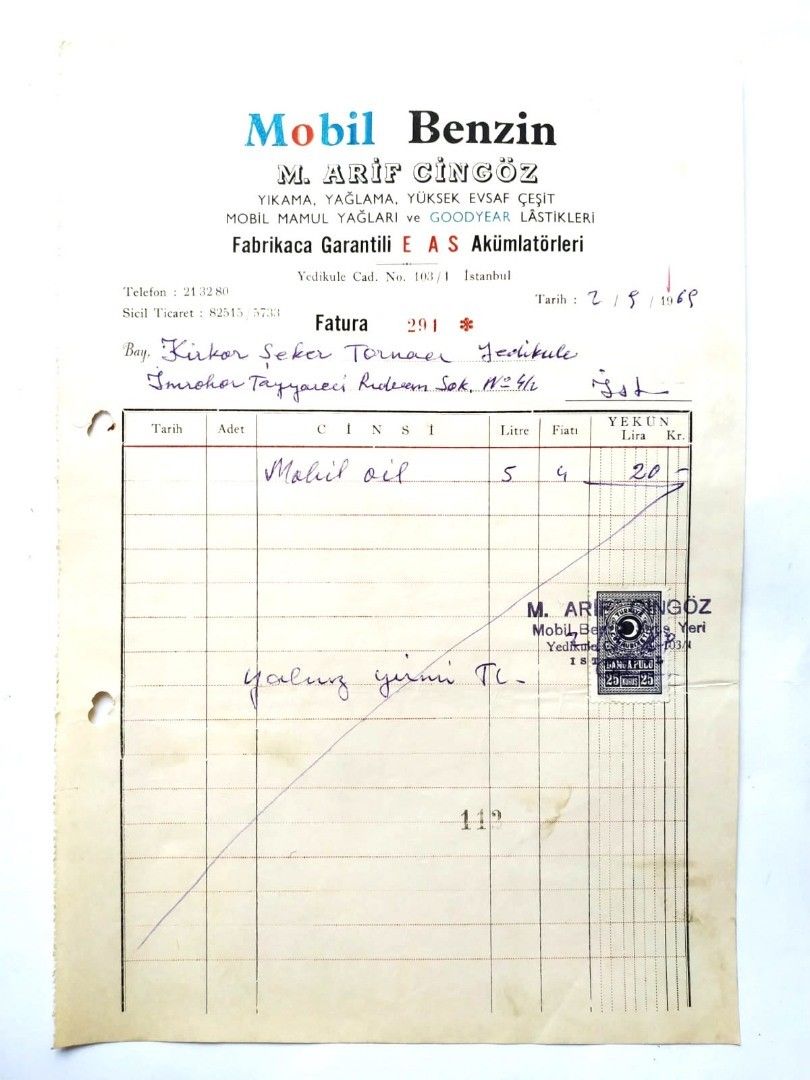 Mobil Benzin
M. ARİF CİNGÖZ
YIKAMA, YAĞLAMA, YÜKSEK EVSAF ÇEŞİT
MOBİL MAMUL YAĞLARI ve GOODYEAR LÂSTİKLERİ
Fabrikaca Garantili E A S Akümlatörleri
Yedikule Cad. No. 103/1 İstanbul
Telefon : 21 32 80
Tarih : 2 / 9 / 1969
Sicil Ticaret : 82515/5733
Fatura 291 *
Bay. Kirkor Şeker Tornacı Yedikule
İmrohor Tayyareci Rıdvan Sok. No 4/2 İst
Tarih Adet CİNSİ Litre Fiatı YEKÛN
Lira Kr.
Mobil oil 5 4 20 -
M. ARİF CİNGÖZ
Mobil Yeri
Yedikule 103/1
DAMGA PULU
25 KURUŞ 25
yalnız yirmi TL-
112